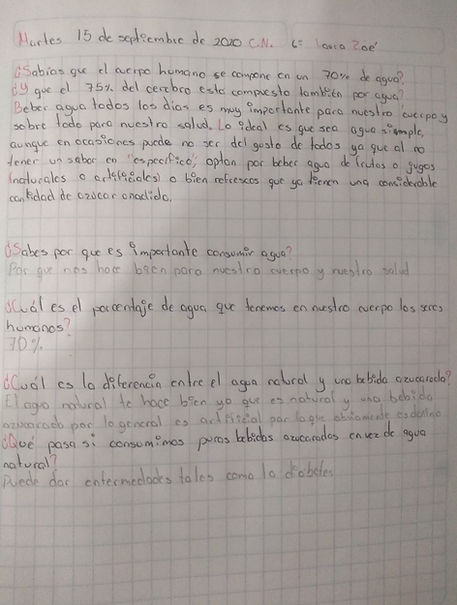 Martes 15 de septiembre de 2020 C.N. 6= Zoé
¿Sabias que el cuerpo humano se compone en un 70% de agua?
¿y que el 75% del cerebro esta compuesto tambien por agua?
Beber agua todos los dias es muy importante para nuestro cuerpo y
sobre todo para nuestra salud. Lo ideal es que sea agua simple,
aunque en ocasiones puede no ser del gusto de todos ya que al no
tener un sabor en "especifico", optan por beber agua de frutas o jugos
(naturales o artificiales) o bien refrescos que ya tienen una considerable
cantidad de azucar anadida.
¿Sabes por que es importante consumir agua?
Por que nos hace bien para nuestro cuerpo y nuestro salud
¿Cuál es el porcentaje de agua que tenemos en nuestro cuerpo los seres
humanos?
70%
¿Cuál es la diferencia entre el agua natural y una bebida azucarada?
El agua natural te hace bien ya que es natural y una bebida
azucarada por lo general es artificial por lo que obviamente es dañino
¿Qué pasa si consumimos puras bebidas azucaradas en vez de agua
natural?
Puede dar enfermedades tales como la diabetes